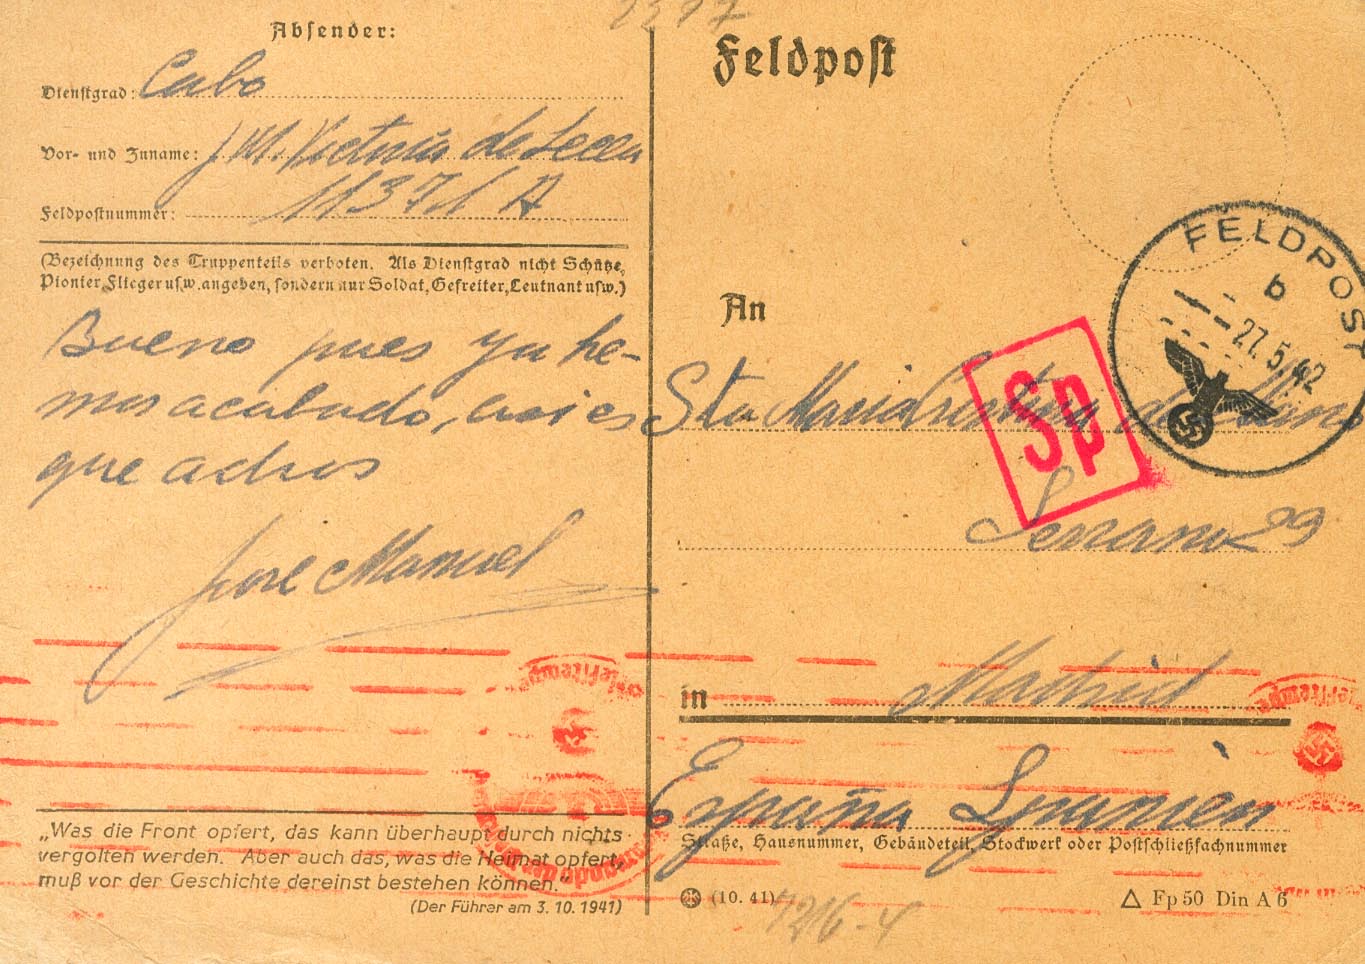 Absender:
Dienstgrad: Cabo
Vor- und Zuname: J. M. Victoria de Lecea
Feldpostnummer: 11371 A
(Bezeichnung des Truppenteils verboten. Als Dienstgrad nicht Schütze,
Pionier, Flieger usw. angeben, sondern nur Soldat, Gefreiter, Leutnant usw.)
Bueno pues ya he-
mos acabado, asi es
que adios
José Manuel
„Was die Front opfert, das kann überhaupt durch nichts
vergolten werden. Aber auch das, was die Heimat opfert,
muß vor der Geschichte dereinst bestehen können."
(Der Führer am 3. 10. 1941)
Feldpost
FELDPOST
b
27.5.42
An
Sp
Sta Maria Cristina de
Serrano
in Madrid
España Spanien
Straße, Hausnummer, Gebäudeteil, Stockwerk oder Postschließfachnummer
(10. 41)
Fp 50 Din A 6